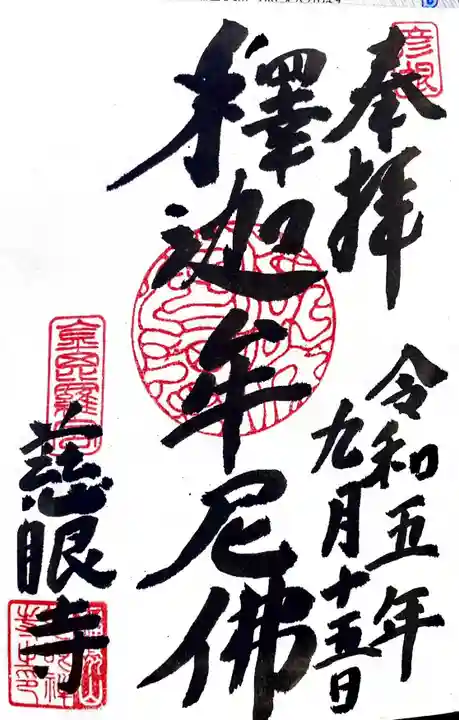 彦根
奉拝
令和五年
九月十五日
釋迦牟尼佛
金毘羅宮
慈眼寺